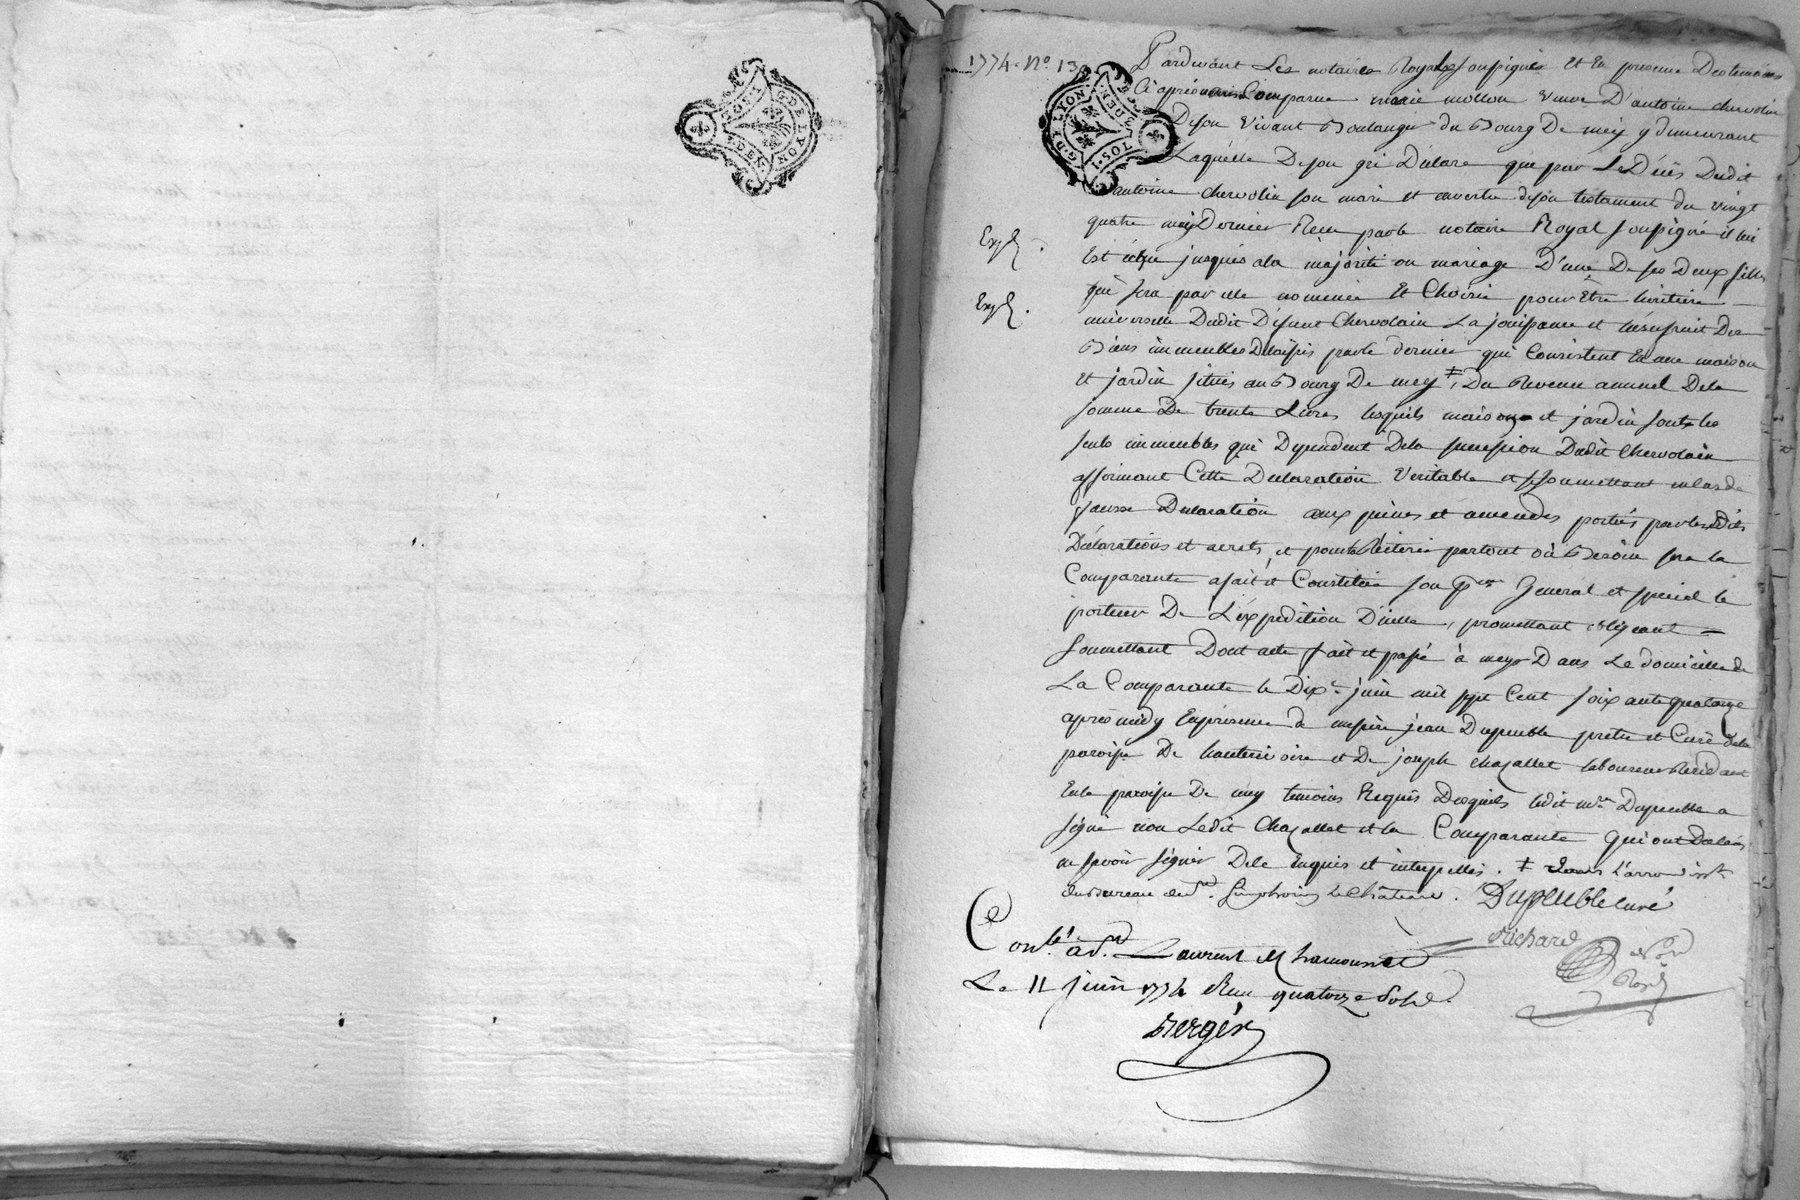 G. DE LYON
1. SOL
DEN
1774. No. 13
G. DE LYON
1. SOL
DEN
Pardevant Les notaires Royaux soussignés Et En presence Des temoins
Ci après nommés Comparue marie mollon veuve D'antoine chervolin
De son vivant Boulanger du Bourg De meÿs y demeurant
Laquelle De son gré Déclare que par Le Décès Dudit
antoine chervolin son mari et ouverture de son testament du vingt
quatre may Dernier Recu par le notaire Royal soussigné il lui
Exp.
Est échu jusques a la majorité ou mariage D'une De ses Deux filles
Exp.
qui sera par elle nommée Et Choisie pour Etre héritiere
universelle Dudit Défunt Chervolain La jouissance et l'usufruit Des
Biens immeubles Délaissés par le dernier qui Consistent En une maison
et jardin situés au Bourg De meÿs ‡, Du Revenu annuel De la
somme De trente Livres lesquels maison et jardin sont les
seuls immeubles qui Dépendent De la succession Dudit Chervolain
affirmant Cette Déclaration Veritable et se soumettant en cas de
fausse Déclaration aux peines et amendes portées par les Edits
Déclarations et arrets, et pour la Réiterer partout où Besoin sera la
Comparante a fait et Constitué son pr.eur General et special le
porteur De L'expédition D'icelle, promettant obligeant =
soumettant Dont acte fait et passé à meys Dans Le domicille de
La Comparante le Dix.e juin mil sept Cent soixante quatorze
après midy En présence de messire jean Dupeuble pretre et Curé de la
paroisse De hauterivoire et De joseph chazallet laboureur Residant
En la paroisse De meys temoins Requis Desquels ledit m.re Dupeuble a
signé non Ledit Chazallet et la Comparante qui ont Déclaré
ne savoir signer De ce Enquis et interpellés. ‡ Dans L'arrondisst.
du Bureau de St. Simphorien Le Château. Dupeuble curé
Richard
not.
Royal
Conlé. à St. Laurent de Chamousset
Le 11 juin 1774 Reçu quatorze Sols.
Berger